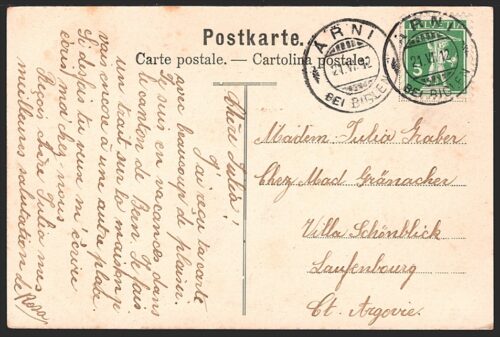 Postkarte.
Carte postale. — Cartolina postale.
ÄRNI
21.VI.12
BEI BIGLEN
ÄRNI
21.VI.12
BEI BIGLEN
5
Chère Julia!
J'ai reçu ta carte
avec beaucoup de plaisir.
Je suis en vacances dans
le canton de Bern. Je fais
un trait sur la maison je
vais encore à une autre place.
Si desir tu veux m'écrire
écris ma chez nous.
Reçois chère Julia mes
meilleures salutation
de Rosa
Madem. Julia Graber
Chez Mad Gränacher
Villa Schönblick
Laufenbourg
Ct. Argovie.